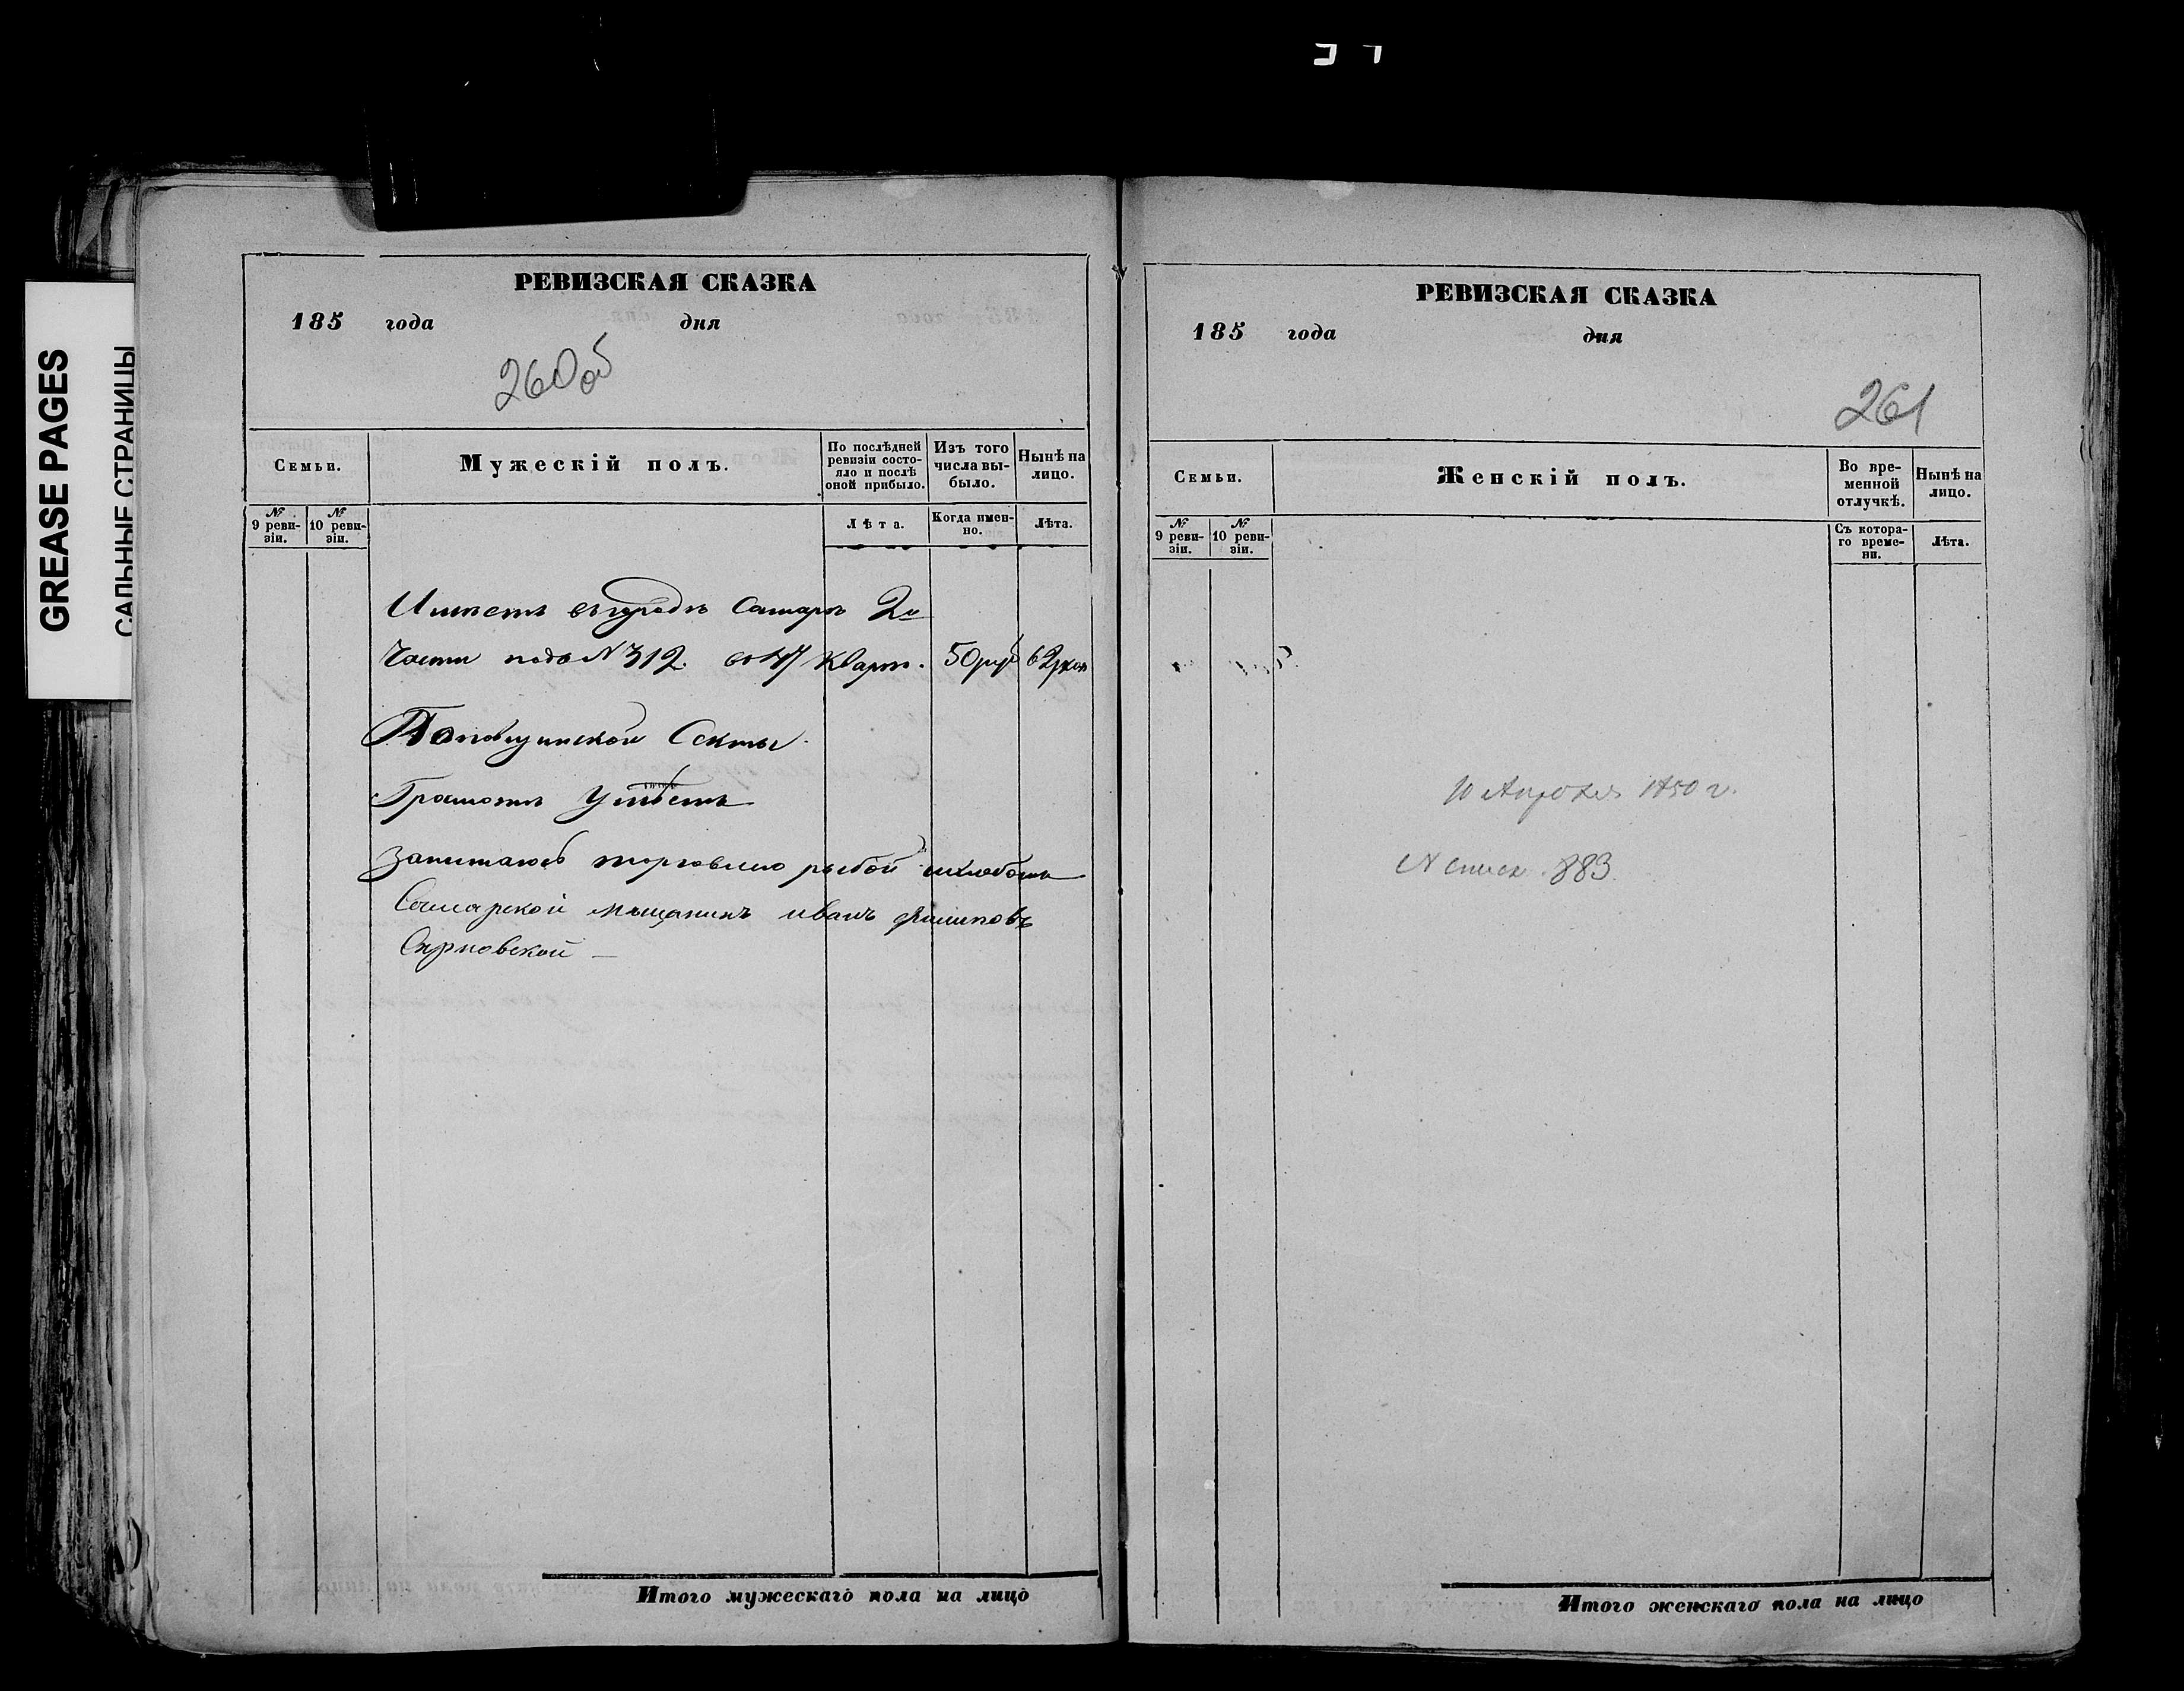 GREASE PAGES
САЛЬНЫЕ СТРАНИЦЫ
РЕВИЗСКАЯ СКАЗКА
185 года дня
260об
Семьи.
Мужескій полъ.
По послѣдней ревизіи состо-
яло и послѣ оной прибыло.
Изъ того числа вы-
было.
Нынѣ на лицо.
№ 9 реви-
зіи.
№ 10 реви-
зіи.
Лѣта.
Когда имен-
но.
Лѣта.
Имѣетъ въ городѣ Самарѣ 2й
Части подъ №312. въ 47 кварт. 50 руб 62 коп
Секты
Грамотѣ умѣетъ
Занимаюсь торговлею рыбой и хлебомъ
Самарской мѣщанинъ иванъ филиповъ
Итого мужескаго пола на лицо
РЕВИЗСКАЯ СКАЗКА
185 года дня
261
Семьи.
Женскій полъ.
Во вре-
менной
отлучкѣ.
Нынѣ на
лицо.
№ 9 реви-
зіи.
№ 10 реви-
зіи.
Съ котора-
го време-
ни.
Лѣта.
10 Апрѣля 1850 г.
№ списк. 883.
Итого женскаго пола на лицо